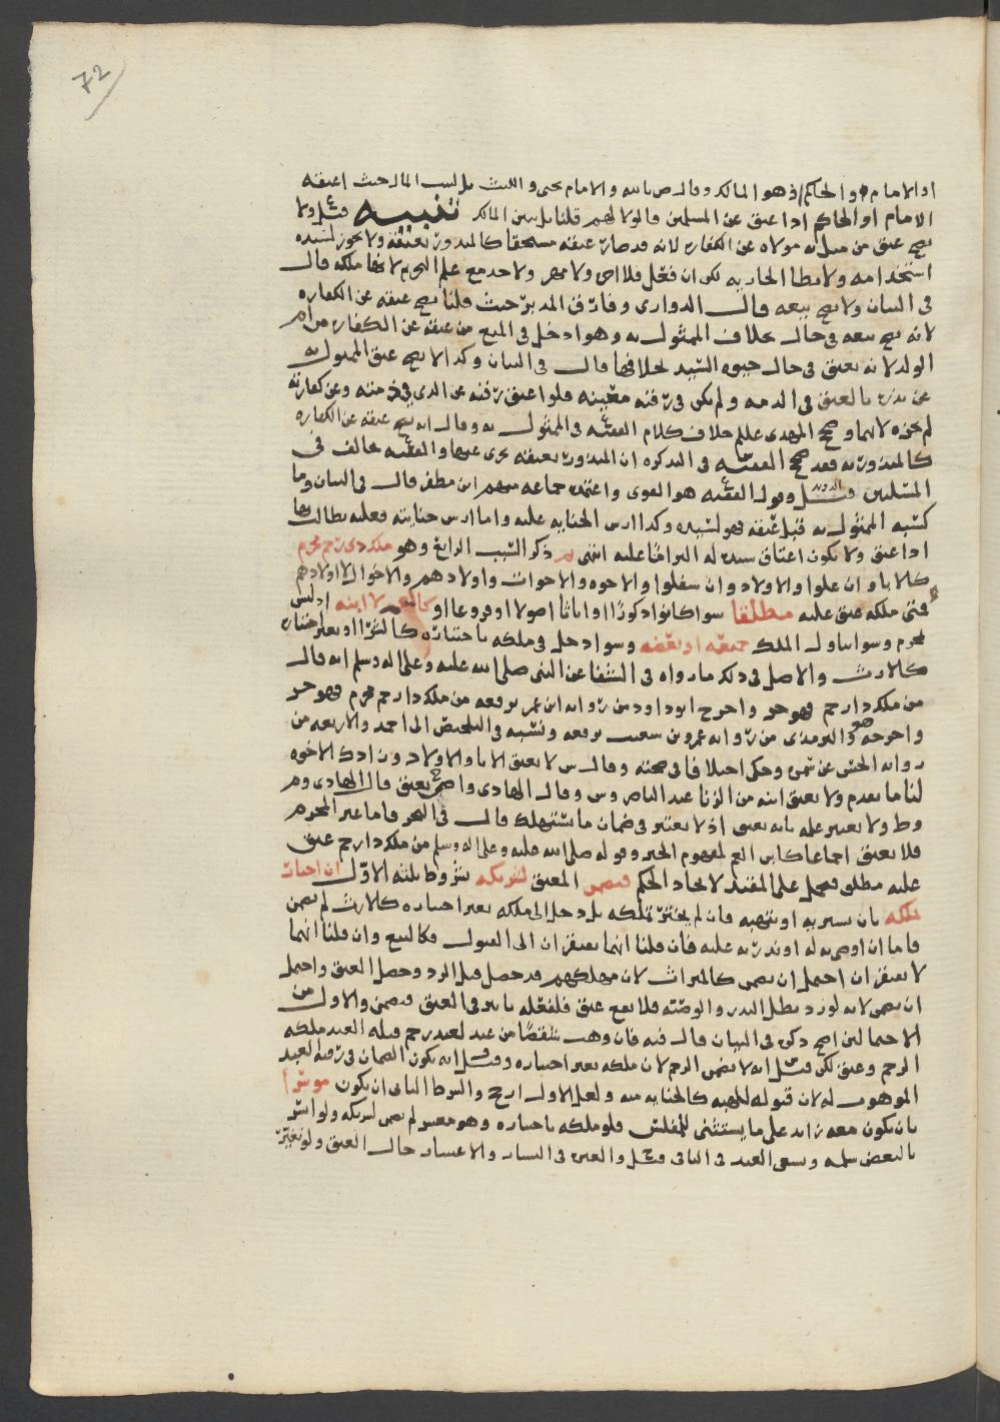 72
او الامام او الحاكم اذ هو المالك وقال ص بالله والامام يحيى والليث بل لبيت المال حيث اعتقه
الامام او الحاكم اذا عتق عن المسلمين فالولا لهم قلنا بل بين المالك تنبيه قيل ولا
يصح عتق من مثل به مولاه عن الكفاره لانه قد صار عتقه مستحقا كالمنذور بعتقه ولا يجوز لسيده
استخدامه ولا يطا الجاريه لكن ان فعل فلا اجره ولا مهر ولا حد مع علم التحريم لانها ملكه قال
فى البيان ولا يصح بيعه قال الدوارى وفارق المدبر حيث قلنا يصح عتقه عن الكفاره
لانه يصح بيعه فى حال بخلاف الممثول به وهو ادخل فى المنع من عتقه عن الكفاره من ام
الولد لانه يعتق فى حال حيوه السيد بخلافها قال فى البيان وكذا لا يصح عتق الممثول به
عن نذره بالعتق فى الذمه ولم يكن فى رقبه معينه فلو اعتق رقبه عن الذى فى ذمته وعن كفارته
لم يجزه لايهما وصحح المهدى علم خلاف كلام الفقيه فى الممثول به وقال انه يصح عتقه عن الكفاره
كالمنذور به فقد صحح الفقيه فى التذكره ان المنذور بعتقه يجزى عنها والفقيه يخالف فى
المسئلتين قيل وقول الفقيه هو القوى واعتمده جماعه منهم ابن مظفر قال فى البيان وما
كسبه الممثول به قبل عتقه فهو لسيده وكذا ارش الجنايه عليه واما ارش جنايته فعليه يطالب بها
اذا عتق ولا يكون اعتاق سيده له التزاما عليه انتهى ثم ذكر السبب الرابع وهو ملك ذى رحم محرم
كالابا وان علوا والاولاد وان سفلوا والاخوه والاخوات واولادهم والاخوال لا اولادهم
فمتى ملكه عتق عليه مطلقا سوا كانوا ذكورا او اناثا اصولا او فروعا او كالعم لا ابنه اذ ليس
بمحرم وسوا تناول الملك جميعه او بعضه وسوا دخل فى ملكه باختياره كالشرا او بغير اختياره
كالارث والاصل فى ذلك ما رواه فى الشفا عن النبى صلى الله عليه وعلى اله وسلم انه قال
من ملك ذا رحم فهو حر واخرج ابو داود من روايه ابن عمر يرفعه من ملك ذا رحم محرم فهو حر
واخرجه هو والترمذى من روايه عمرو بن سعيب يرفعه ونسبه فى التلخيص الى احمد والاربعه من
روايه الحسن عن سمره وحكى اختلافا فى صحته وقال س لا يعتق الا الابا والاولاد دون اولاد الاخوه
لنا ما تقدم ولا يعتق ابنه من الزنا عند الناصر وس وقال الهادى واصح يعتق قال الهادى وم
وط ولا يعتبر علمه بانه يعتق اذ لا يعتبر فى ضمان ما يستهلك قال فى البحر فاما غير المحرم
فلا يعتق اجماعا كابن العم لمفهوم الخبر وقوله صلى الله عليه وعلى اله وسلم من ملك ذا رحم عتق
عليه مطلق فيحمل على المقيد لاتحاد الحكم فيضمن المعتق لشريكه بشروط ثلثه الاول ان اختار
تملكه بان يشتريه او يتهبه فان لم يختر تملكه بل دخل الى ملكه بغير اختياره كالارث لم يضمن
فاما ان اوصى به له او نذر به عليه فان قلنا انهما يفتقران الى القبول فكالبيع وان قلنا انهما
لا يفتقران احتمل ان يضمن كالميراث لان ملكهم قد حصل قبل الرد وحصل العتق واحتمل
ان يضمن لانه لو رد بطل النذر والوصيه فلا يقع عتق فلفعله تاثير فى العتق فيضمن والاول من
الاحتمالين اصح ذكره فى البيان قال فيه فان وهب شقصا من عبد لعبد رحم قبله العبد ملكه
الرحم وعتق لكن قيل انه لا يضمن الرحم لان ملكه بغير اختياره وقيل انه يكون الضمان فى رقبه العبد
الموهوب له لان قبوله للهبه كالجنايه منه ولعل الاول ارجح والشرط الثانى ان يكون موسرا
بان يكون معه زايد على ما يستثنى للمفلس فلو ملكه باختياره وهو معسر لم يضمن لشريكه ولو ايسر
بالبعض سلمه وسعى العبد فى الباقى قيل والعبره فى اليسار والاعسار حال العتق ولو تغير